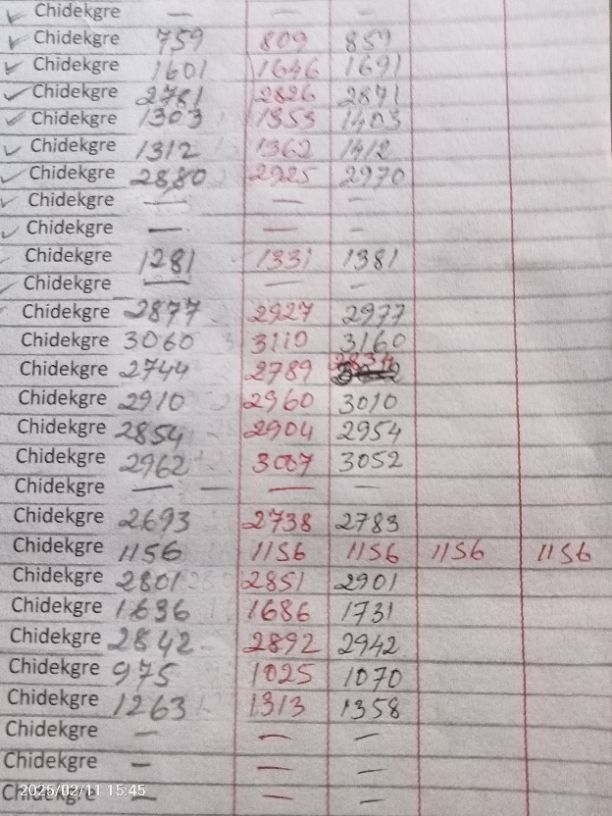 Chidekgre — — —
Chidekgre 759 809 859
Chidekgre 1601 1646 1691
Chidekgre 2781 2826 2871
Chidekgre 1303 1353 1403
Chidekgre 1312 1362 1412
Chidekgre 2880 2925 2970
Chidekgre — — —
Chidekgre — — —
Chidekgre 1281 1331 1381
Chidekgre — — —
Chidekgre 2877 2927 2977
Chidekgre 3060 3110 3160
Chidekgre 2744 2789 2834
Chidekgre 2910 2960 3010
Chidekgre 2854 2904 2954
Chidekgre 2962 3007 3052
Chidekgre — — — —
Chidekgre 2693 2738 2783
Chidekgre 1156 1156 1156 1156 1156
Chidekgre 2801 2851 2901
Chidekgre 1636 1686 1731
Chidekgre 2842 2892 2942
Chidekgre 975 1025 1070
Chidekgre 1263 1313 1358
Chidekgre — — —
Chidekgre — — —
Chidekgre — — —
2025/02/11 15:45